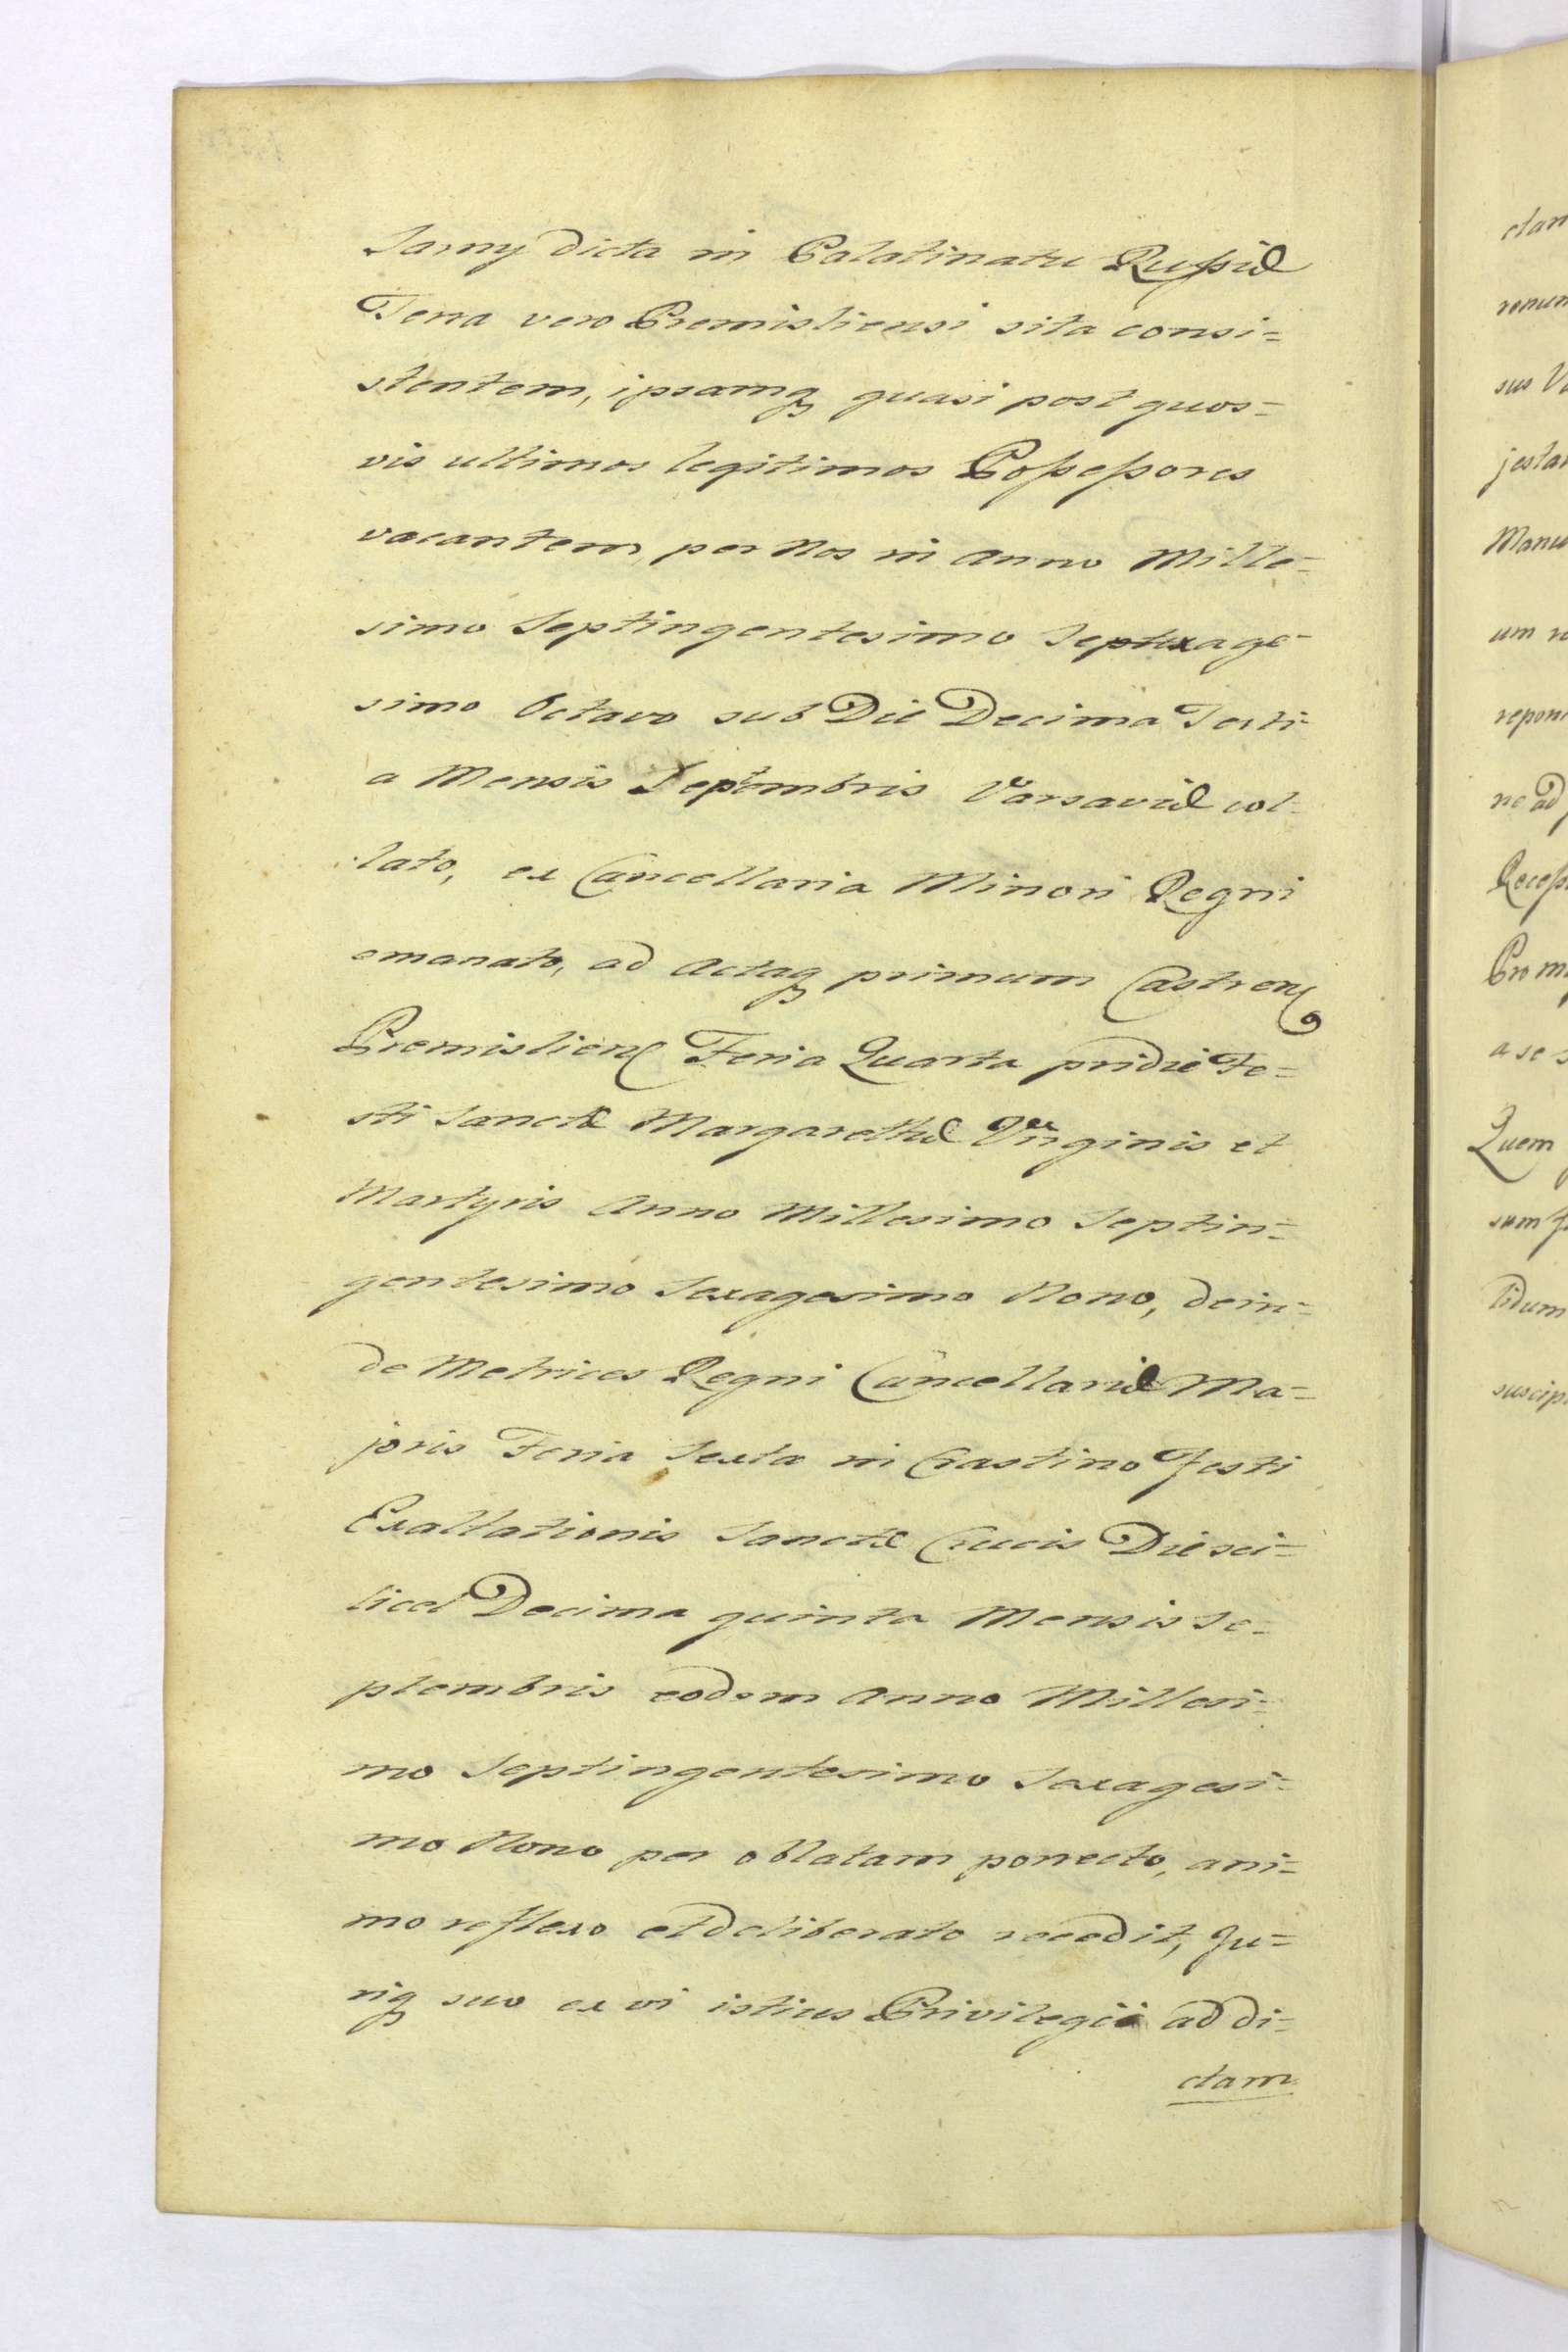 Jamy dicta in Palatinatu Russiæ
Terra vero Premisliensi sita consi=
stentem, ipsamq₃ quasi post quos=
vis ultimos legitimos Possessores
vacantem, per Nos in Anno Mille=
simo Septingentesimo Sexage=
simo Octavo sub Die Decima Terti=
a Mensis Septembris Varsaviæ col=
lato, ex Cancellaria Minori Regni
emanato, ad Actaq₃ primum Castren
Premislien Feria Quarta pridie Fe=
sti Sanctæ Margarethæ Virginis et
Martyris Anno Millesimo Septin=
gentesimo Sexagesimo Nono, dein=
de Metrices Regni Cancellariæ Ma=
joris Feria Sexta in Crastino Festi
Exaltationis Sanctæ Crucis Die sci=
licet Decima quinta Mensis Se=
ptembris eodem Anno Millesi=
mo Septingentesimo Sexagesi=
mo Nono per oblatam porrecto, ani=
mo reflexo et deliberato recedit, Ju=
riq₃ suo ex vi istius Privilegii ad di=
ctam
ctam
sus
jestat
Manu
um
reponi
ne ad
a se
Quem
tidum
suscip